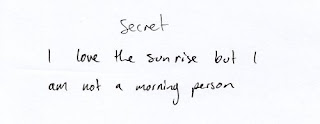 Secret
I love the sunrise but I
am not a morning person